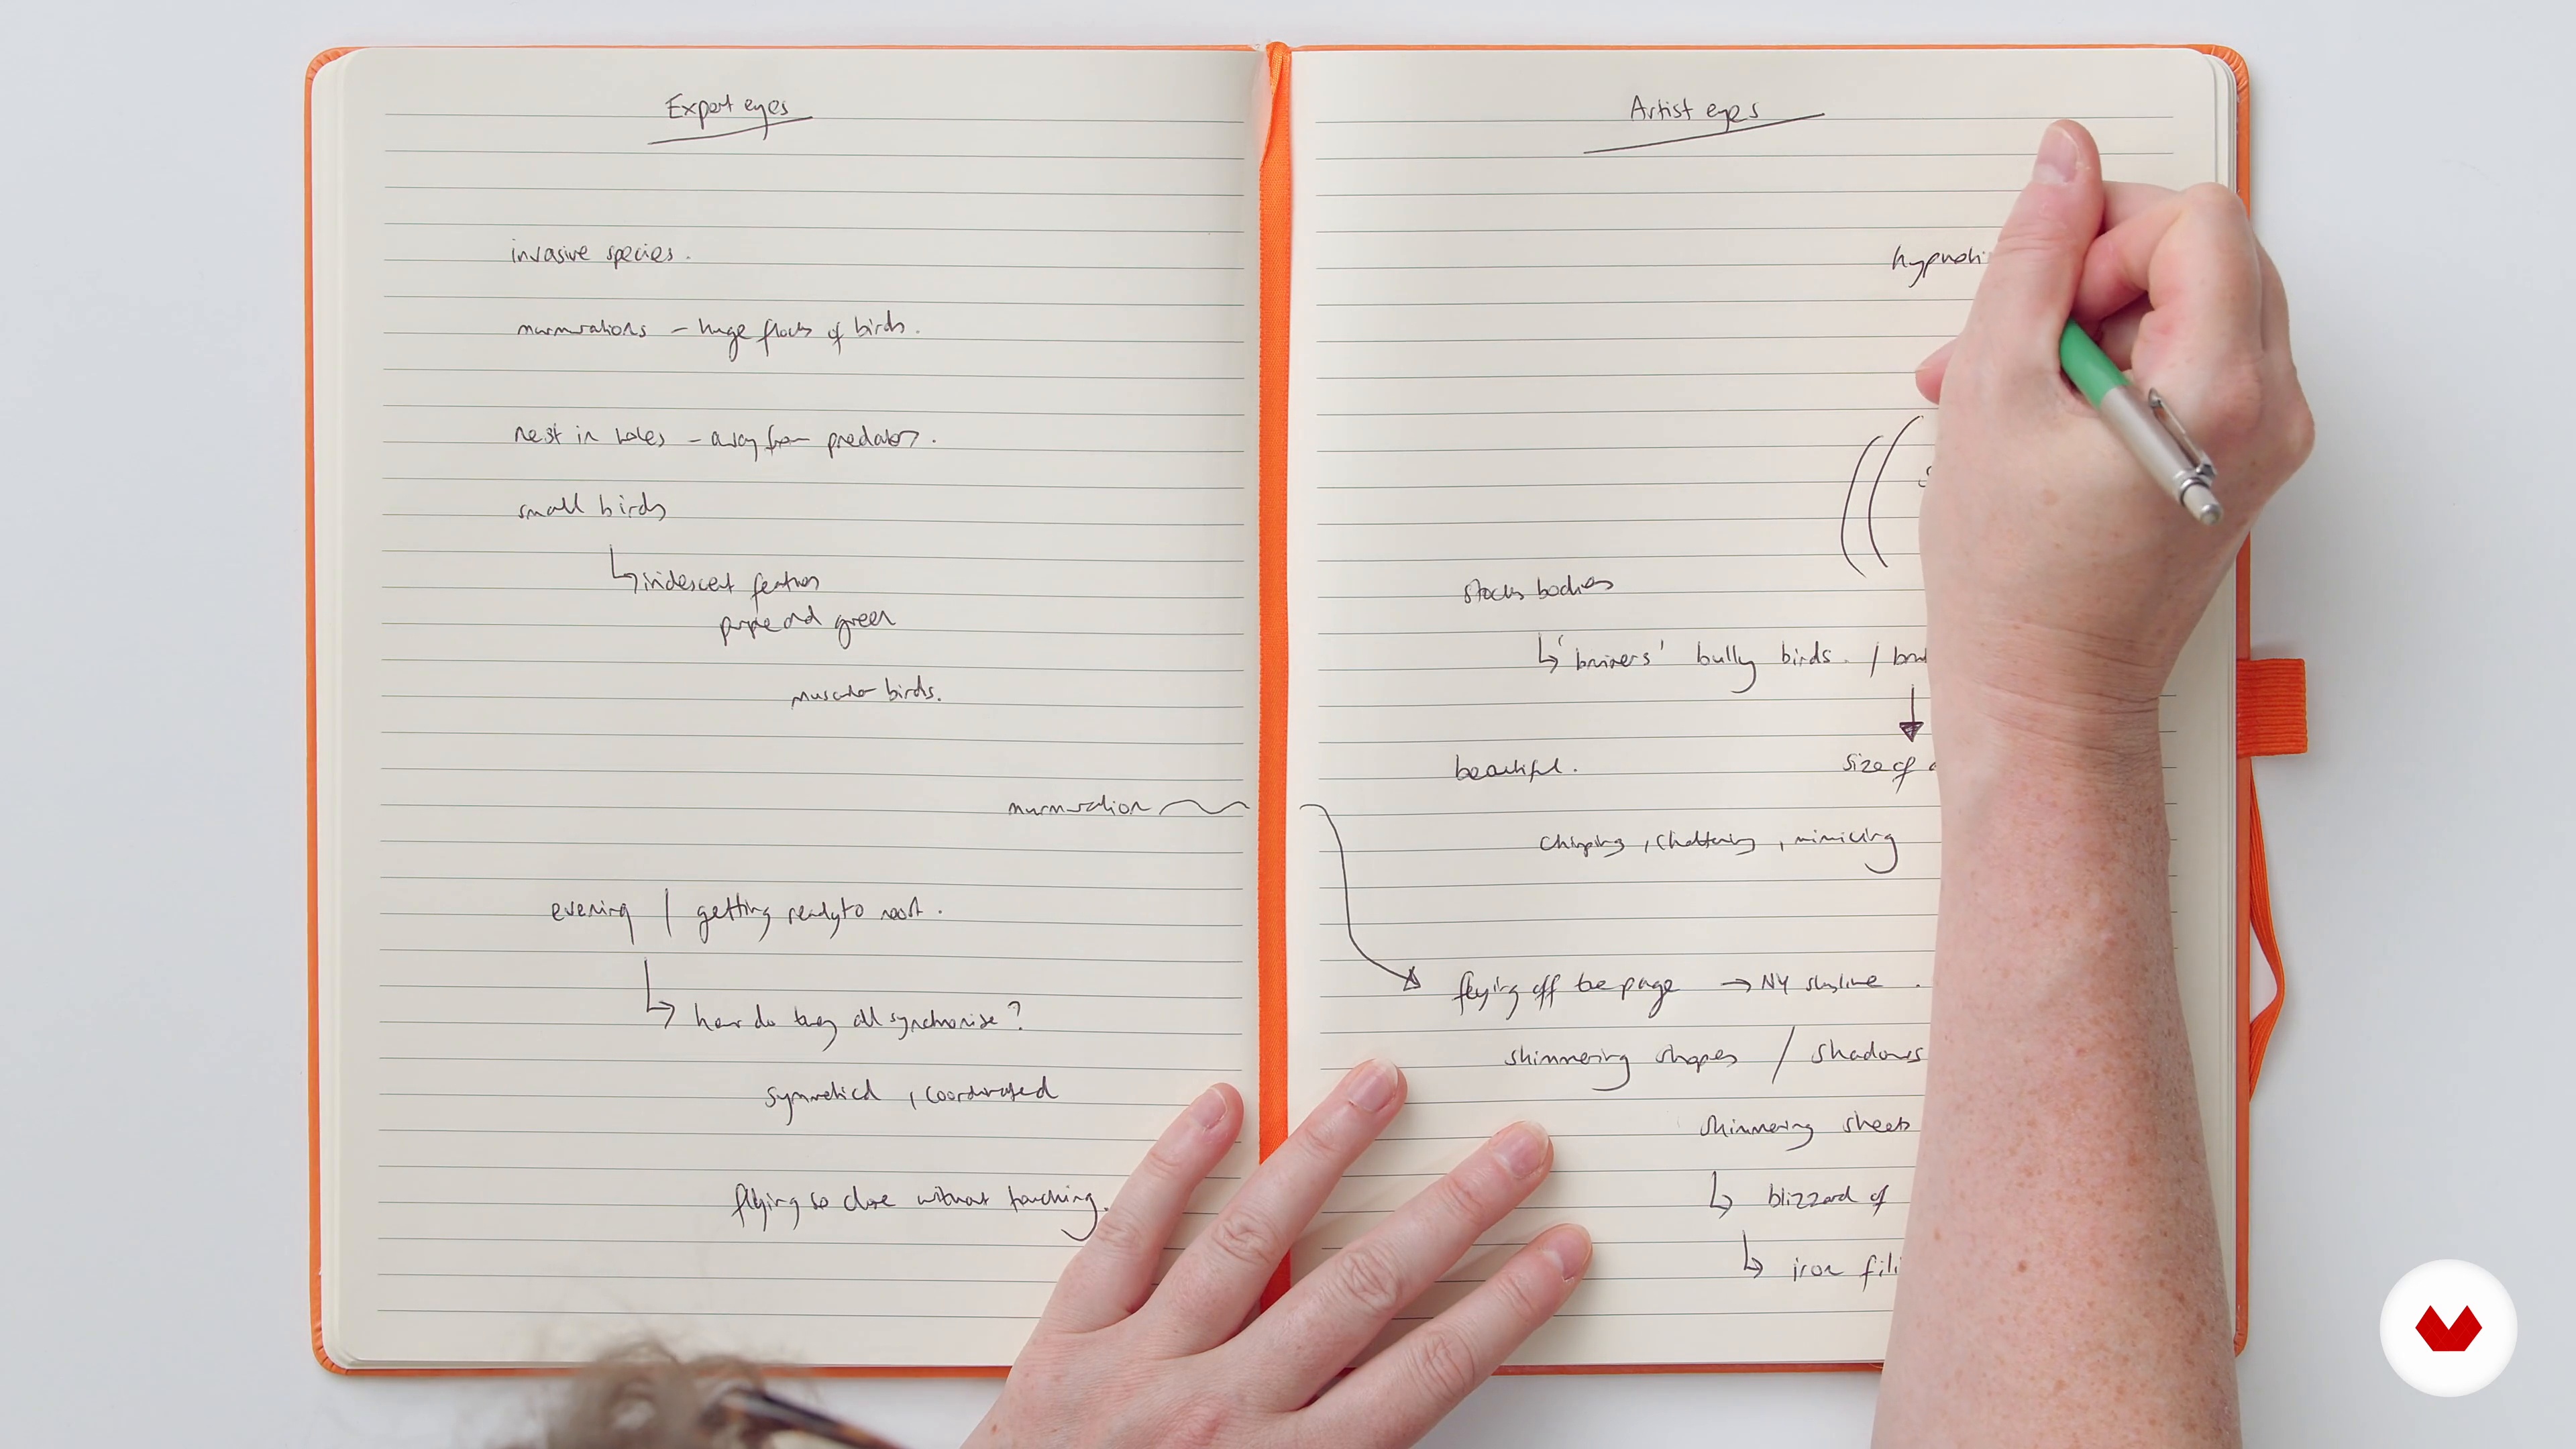 Expert eyes
invasive species.
murmurations - huge flocks of birds.
nest in holes - away from predators.
small birds
iridescent feathers
purple and green
muscular birds.
murmuration
evening | getting ready to roost.
how do they all synchronise?
symmetical, coordinated
flying so close without touching.
Artist eyes
hypnoti
stocky bodies
'bruisers' bully birds. /
beautiful.
size of
chirping, chattering, mimicing
flying off the page → NY skyline.
shimmering shapes / shadows
shimmering sheets
blizzard of
iron fili